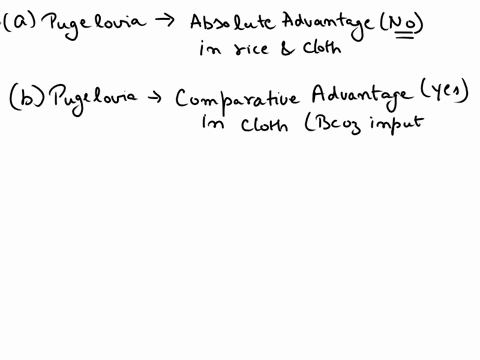 (a) Pugelovia → Absolute Advantage (No)
in rice & cloth
(b) Pugelovia → Comparative Advantage (yes)
In cloth (Bcoz input